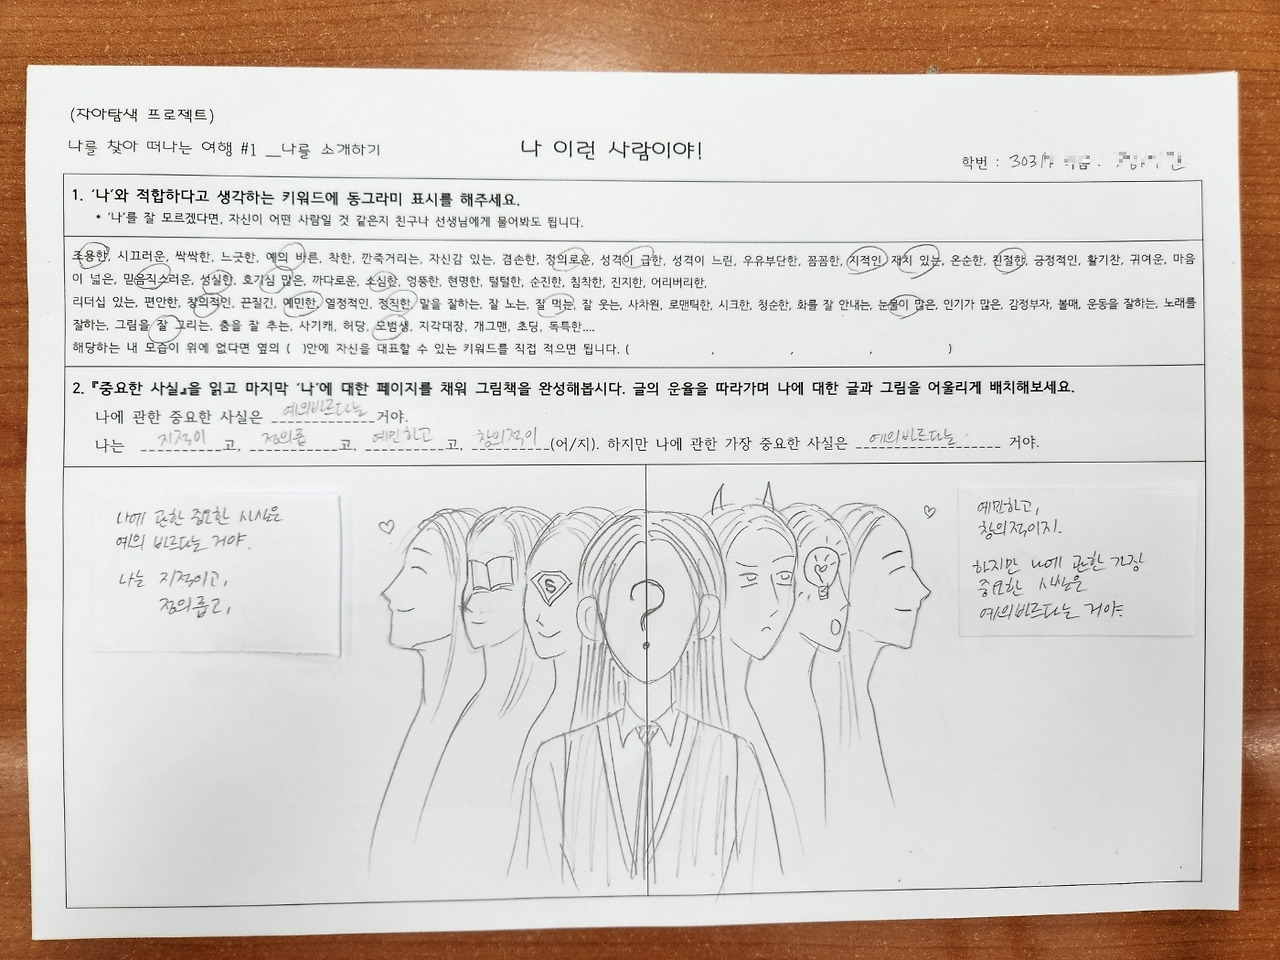 (자아탐색 프로젝트)
나를 찾아 떠나는 여행 #1 __나를 소개하기
나 이런 사람이야!
학번 : 303
1. '나'와 적합하다고 생각하는 키워드에 동그라미 표시를 해주세요.
* '나'를 잘 모르겠다면, 자신이 어떤 사람일 것 같은지 친구나 선생님에게 물어봐도 됩니다.
조용한, 시끄러운, 싹싹한, 느긋한, 예의 바른, 착한, 깐죽거리는, 자신감 있는, 겸손한, 정의로운, 성격이 급한, 성격이 느린, 우유부단한, 꼼꼼한, 지적인, 재치 있는, 온순한, 친절한, 긍정적인, 활기찬, 귀여운, 마음
이 넓은, 믿음직스러운, 성실한, 호기심 많은, 까다로운, 소심한, 엉뚱한, 현명한, 털털한, 순진한, 침착한, 진지한, 어리버리한,
리더십 있는, 편안한, 창의적인, 끈질긴, 예민한, 열정적인, 정직한, 말을 잘하는, 잘 노는, 잘 먹는, 잘 웃는, 사차원, 로맨틱한, 시크한, 청순한, 화를 잘 안내는, 눈물이 많은, 인기가 많은, 감정부자, 볼매, 운동을 잘하는, 노래를
잘하는, 그림을 잘 그리는, 춤을 잘 추는, 사기캐, 허당, 모범생, 지각대장, 개그맨, 초딩, 독특한....
해당하는 내 모습이 위에 없다면 옆의 ( )안에 자신을 대표할 수 있는 키워드를 직접 적으면 됩니다. ( , , , )
2. 『중요한 사실』을 읽고 마지막 '나'에 대한 페이지를 채워 그림책을 완성해봅시다. 글의 운율을 따라가며 나에 대한 글과 그림을 어울리게 배치해보세요.
나에 관한 중요한 사실은 예의바르다는 거야.
나는 지적이고, 정의롭고, 예민하고 고, 창의적이 (어/지). 하지만 나에 관한 가장 중요한 사실은 예의바르다는 거야.
나에 관한 중요한 사실은
예의 바르다는 거야.
나는 지적이고,
정의롭고,
예민하고,
창의적이지.
하지만 나에 관한 가장
중요한 사실은
예의바르다는 거야.
S
?